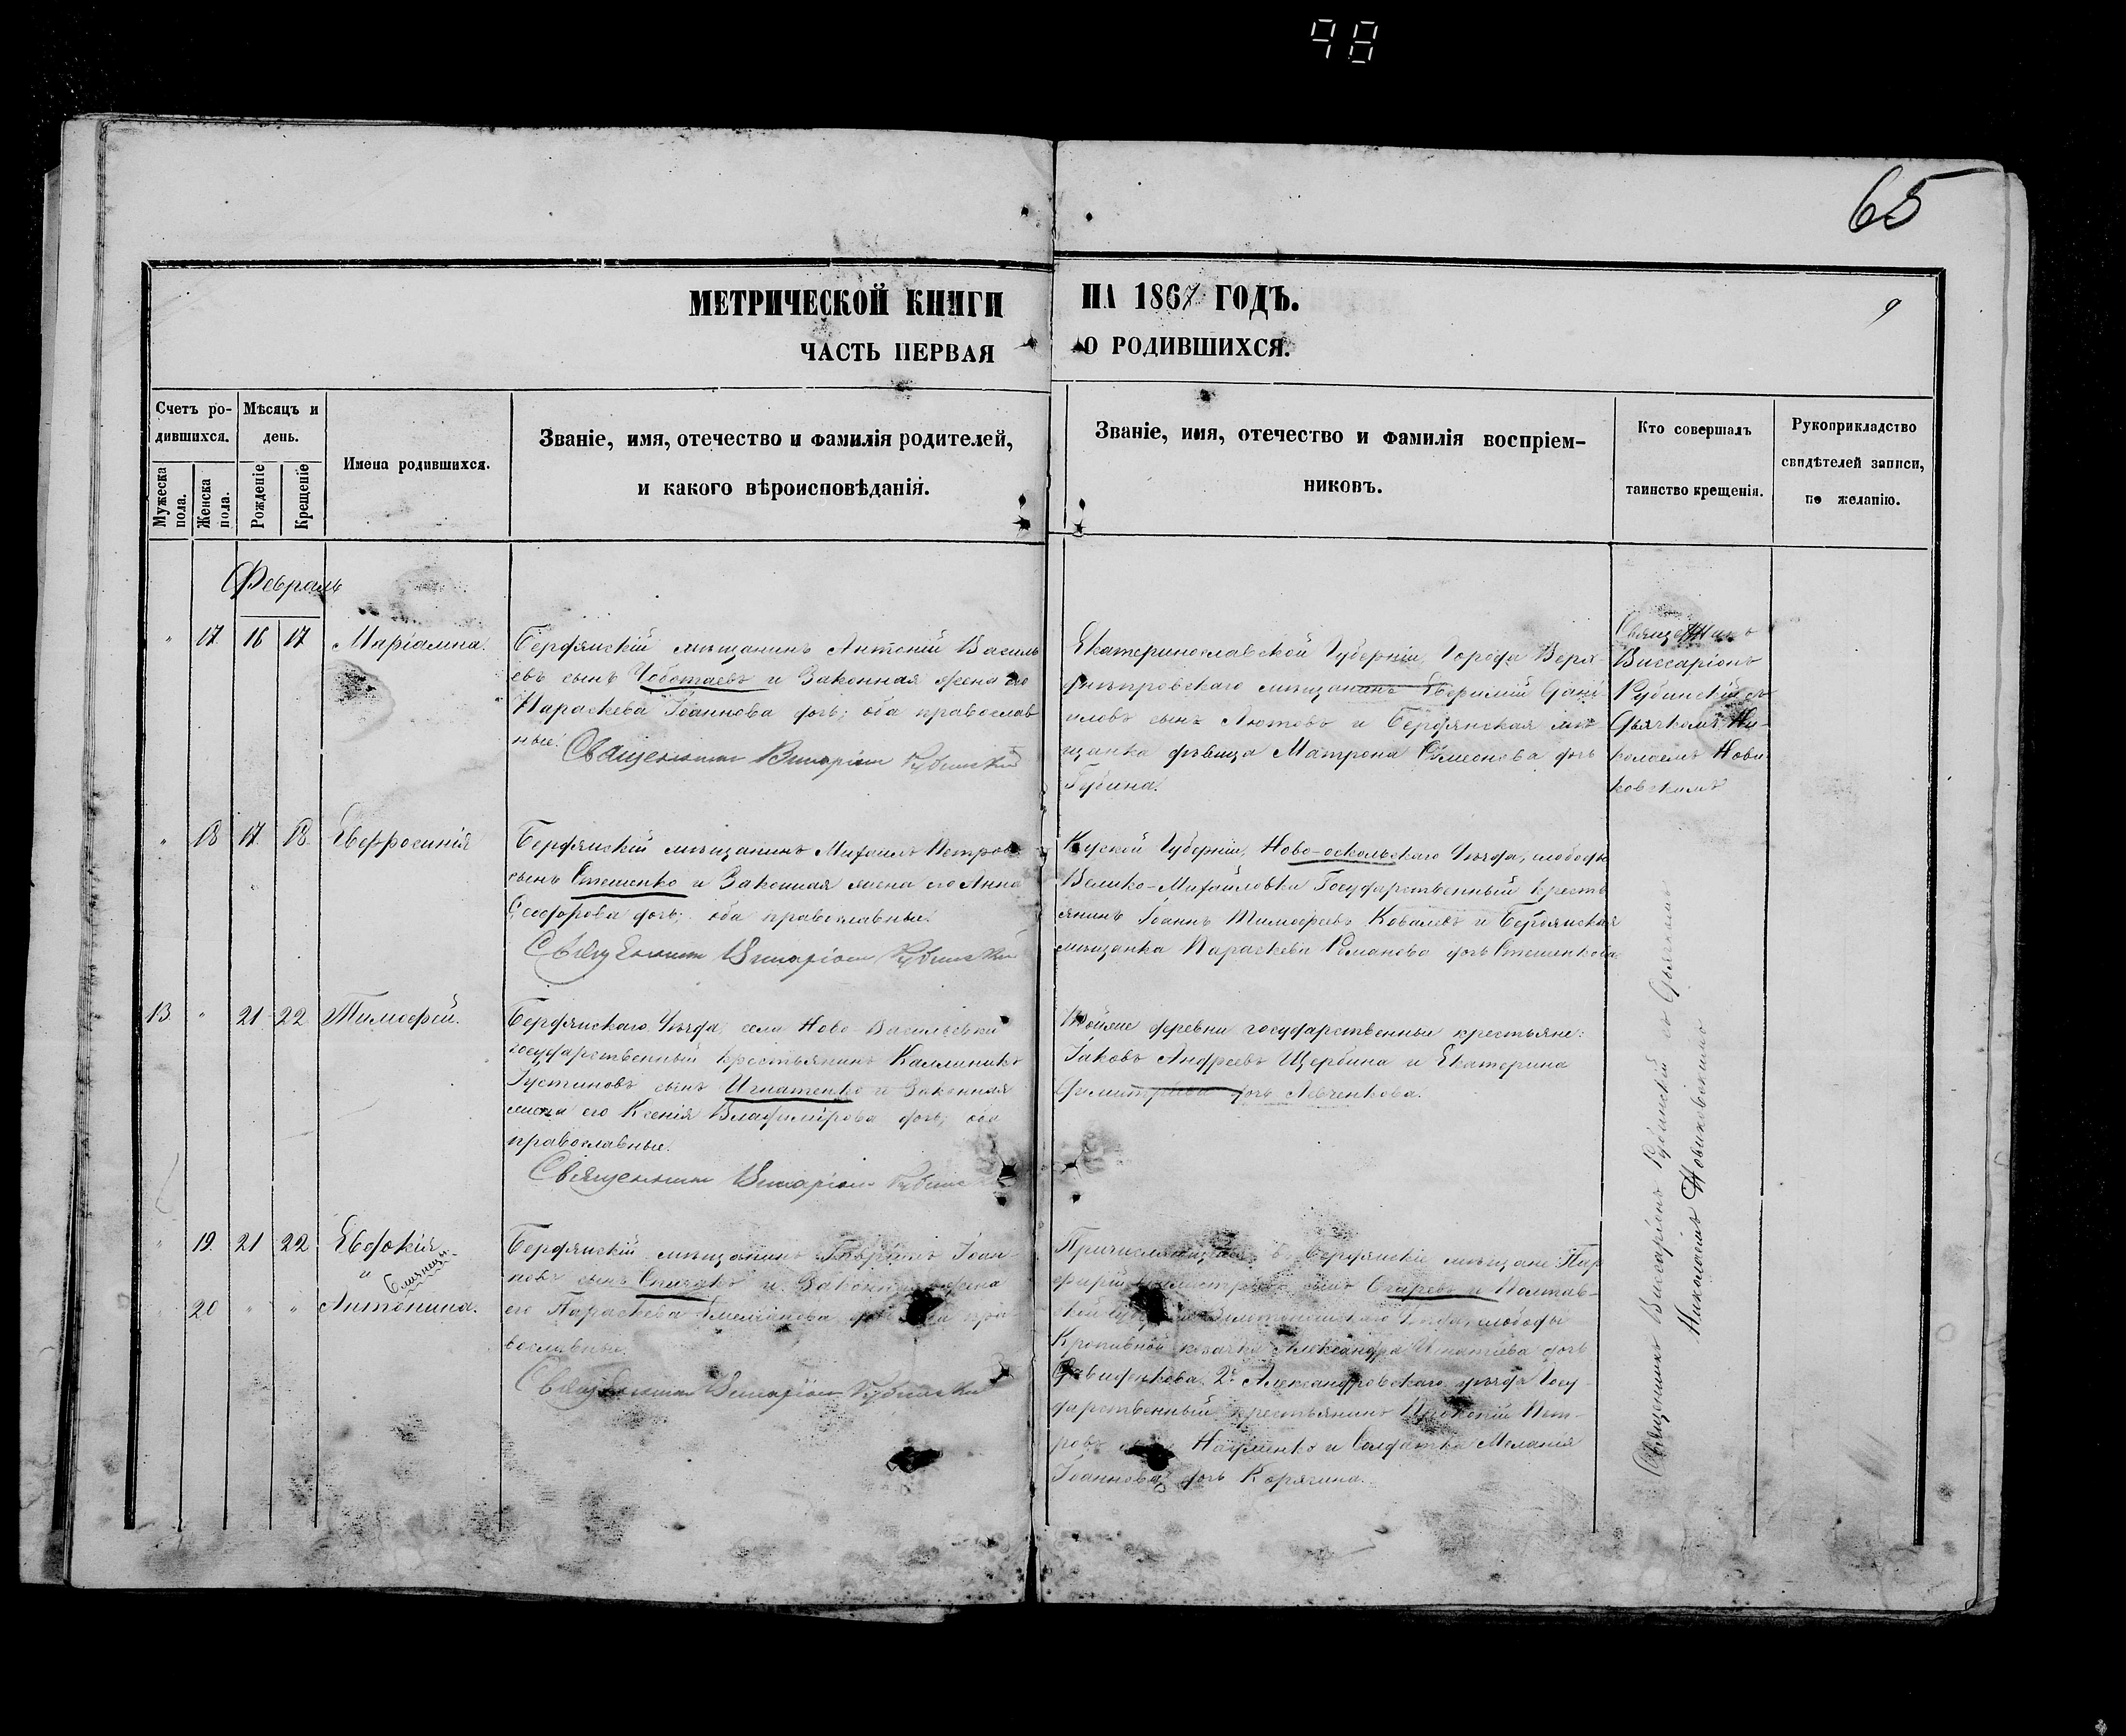 98
65
МЕТРИЧЕСКОЙ КНИГИ НА 1867 ГОДЪ.
9
ЧАСТЬ ПЕРВАЯ О РОДИВШИХСЯ.
Счетъ ро-
дившихся.
Мужеска
пола.
Женска
пола.
Мѣсяцъ и
день.
Рожденіе
Крещеніе
Имена родившихся.
Званіе, имя, отечество и фамилія родителей,
и какого вѣроисповѣданія.
Званіе, имя, отечество и фамилія воспріем-
никовъ.
Кто совершалъ
таинство крещенія.
Рукоприкладство
свидѣтелей записи,
по желанію.
Февраль
" 17. 16 17 Маріамна.
Бердянскій мѣщанинъ Антоній Василь
евъ сынъ Чоботаевъ и Законная жена его
Параскева Іоаннова дочь; оба православ
ные.
Священникъ Виссаріонъ Рубинскій
Екатеринославской Губерніи, Города Верх-
днѣпровскаго мѣщанинъ Дани-
иловъ сынъ Лютовъ и Бердянская мѣ
щанка дѣвица Матрона Сѵмеонова дочь
Губина.
Священникъ
Виссаріонъ
Рубинскій съ
Дьячкомъ Ни-
колаемъ Нови-
ковскимъ
" 18 17. 18. Евфросинія
Бердянскій мѣщанинъ Михаилъ Петровъ
сынъ Стешенко и Законная жена его Анна
Ѳеодорова дочь; оба православные.
Священникъ Виссаріонъ Рубинскій
Курской Губерніи, Ново-оскольскаго Уѣзда, слободы
Велико-Михайловки Государственный кресть
янинъ Іоаннъ Тимофеевъ Ковалевъ и Бердянская
мѣщанка Параскева Романова дочь Стешенкова.
13. " 21 22 Тимофей.
Бердянскаго Уѣзда, села Ново-Васильевки
государственный крестьянинъ Каллиникъ
Іустиновъ сынъ Игнатенко и Законная
жена его Ксенія Владимірова дочь; оба
православные.
Священникъ Виссаріонъ Рубинскій
Тойже деревни государственные крестьяне:
Іаковъ Андреевъ Щербина и Екатерина
Димитріева дочь Левченкова.
" 19. 21 22 Евдокія
и
Близнецы
20 " " Антонина.
Бердянскій мѣщанинъ Гавріилъ Іоан-
новъ сынъ и Законная жена
его Параскева Емеліанова дочь; оба пра-
вославные.
Священникъ Виссаріонъ Рубинскій
въ Бердянскіе мѣщане Пор
фирій сынъ и Полтав-
ской Губерніи Золотоношскаго Уѣзда, слободы
Кропивной козачка Александра Игнатіева дочь
Давиденкова. 2. Александровскаго уѣзда Госу-
дарственный крестьянинъ Пет-
ровъ Науменко и Солдатка Меланія
Іоаннова дочь Корягина.
Священникъ Виссаріонъ Рубинскій съ Дьячкомъ
Николаемъ Новиковскимъ